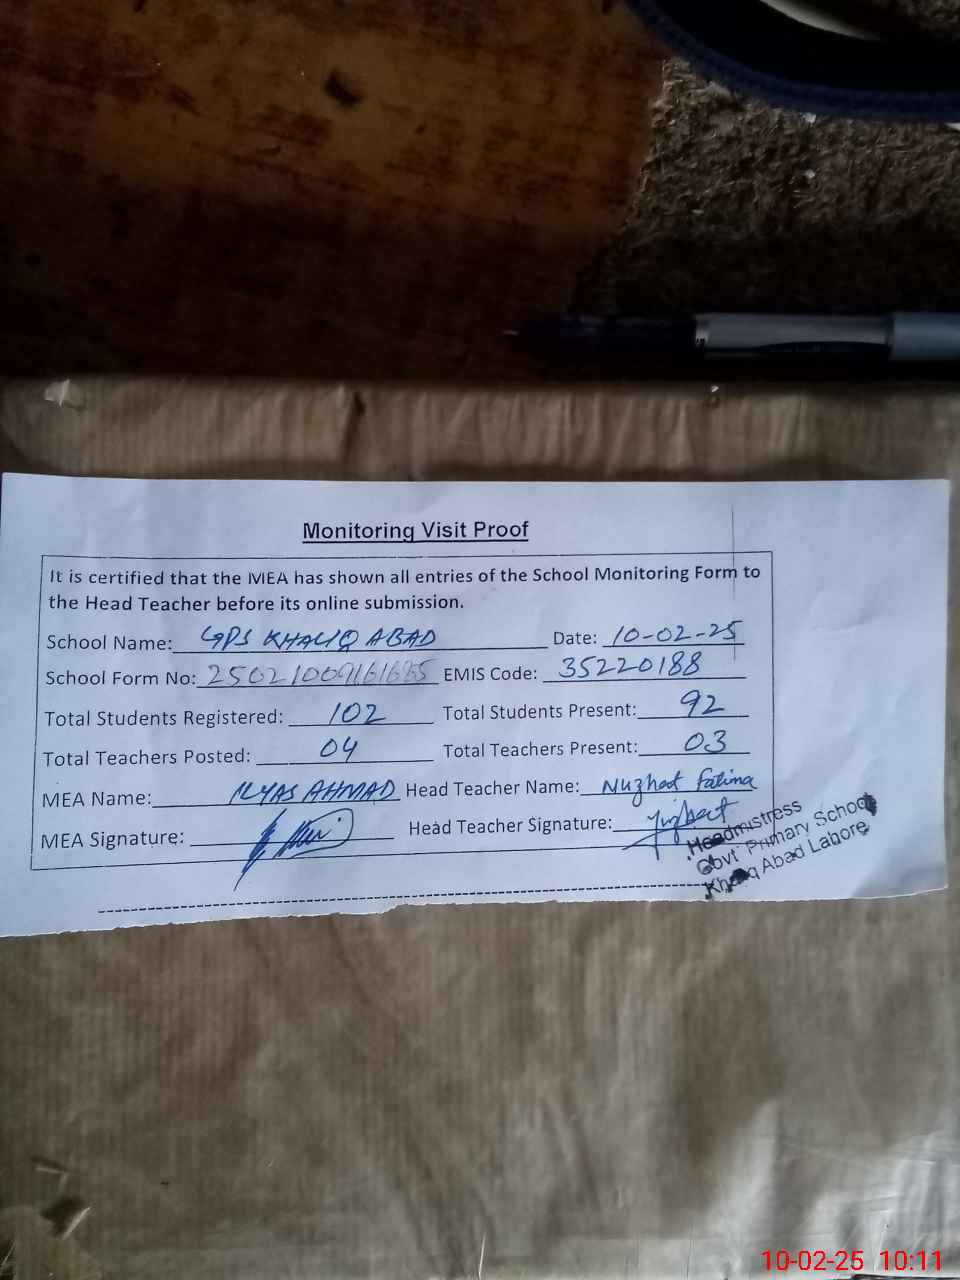 Monitoring Visit Proof
It is certified that the MEA has shown all entries of the School Monitoring Form to
the Head Teacher before its online submission.
School Name: GPS KHALIQ ABAD Date: 10-02-25
School Form No: EMIS Code: 35220188
Total Students Registered: 102 Total Students Present: 92
Total Teachers Posted: 04 Total Teachers Present: 03
MEA Name: ILYAS AHMAD Head Teacher Name: Nuzhat Fatima
MEA Signature: Head Teacher Signature: Nuzhat
Headmistress
Govt Primary School
Khaliq Abad Lahore
10-02-25 10:11